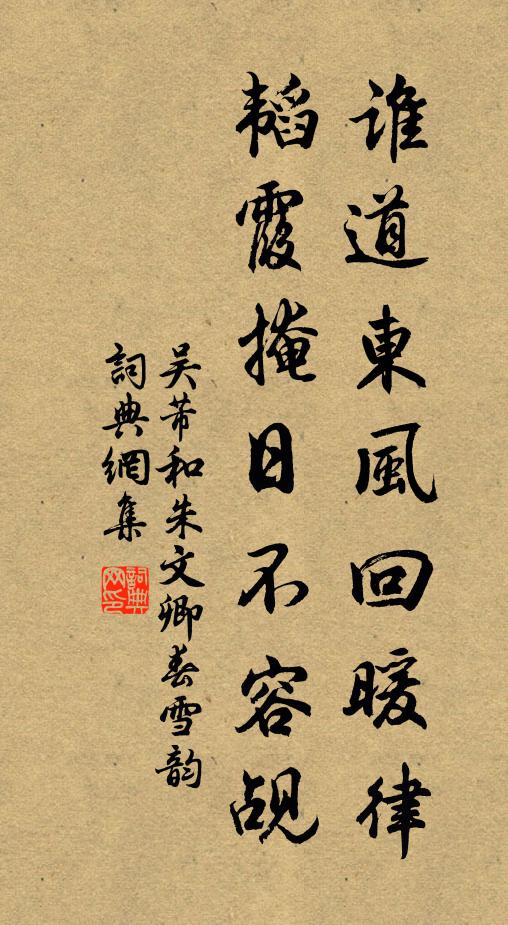 谁道東風回暖律
韜霞掩日不容覘
吴芾和朱文卿春雪韵
詞典網集
詞典网印